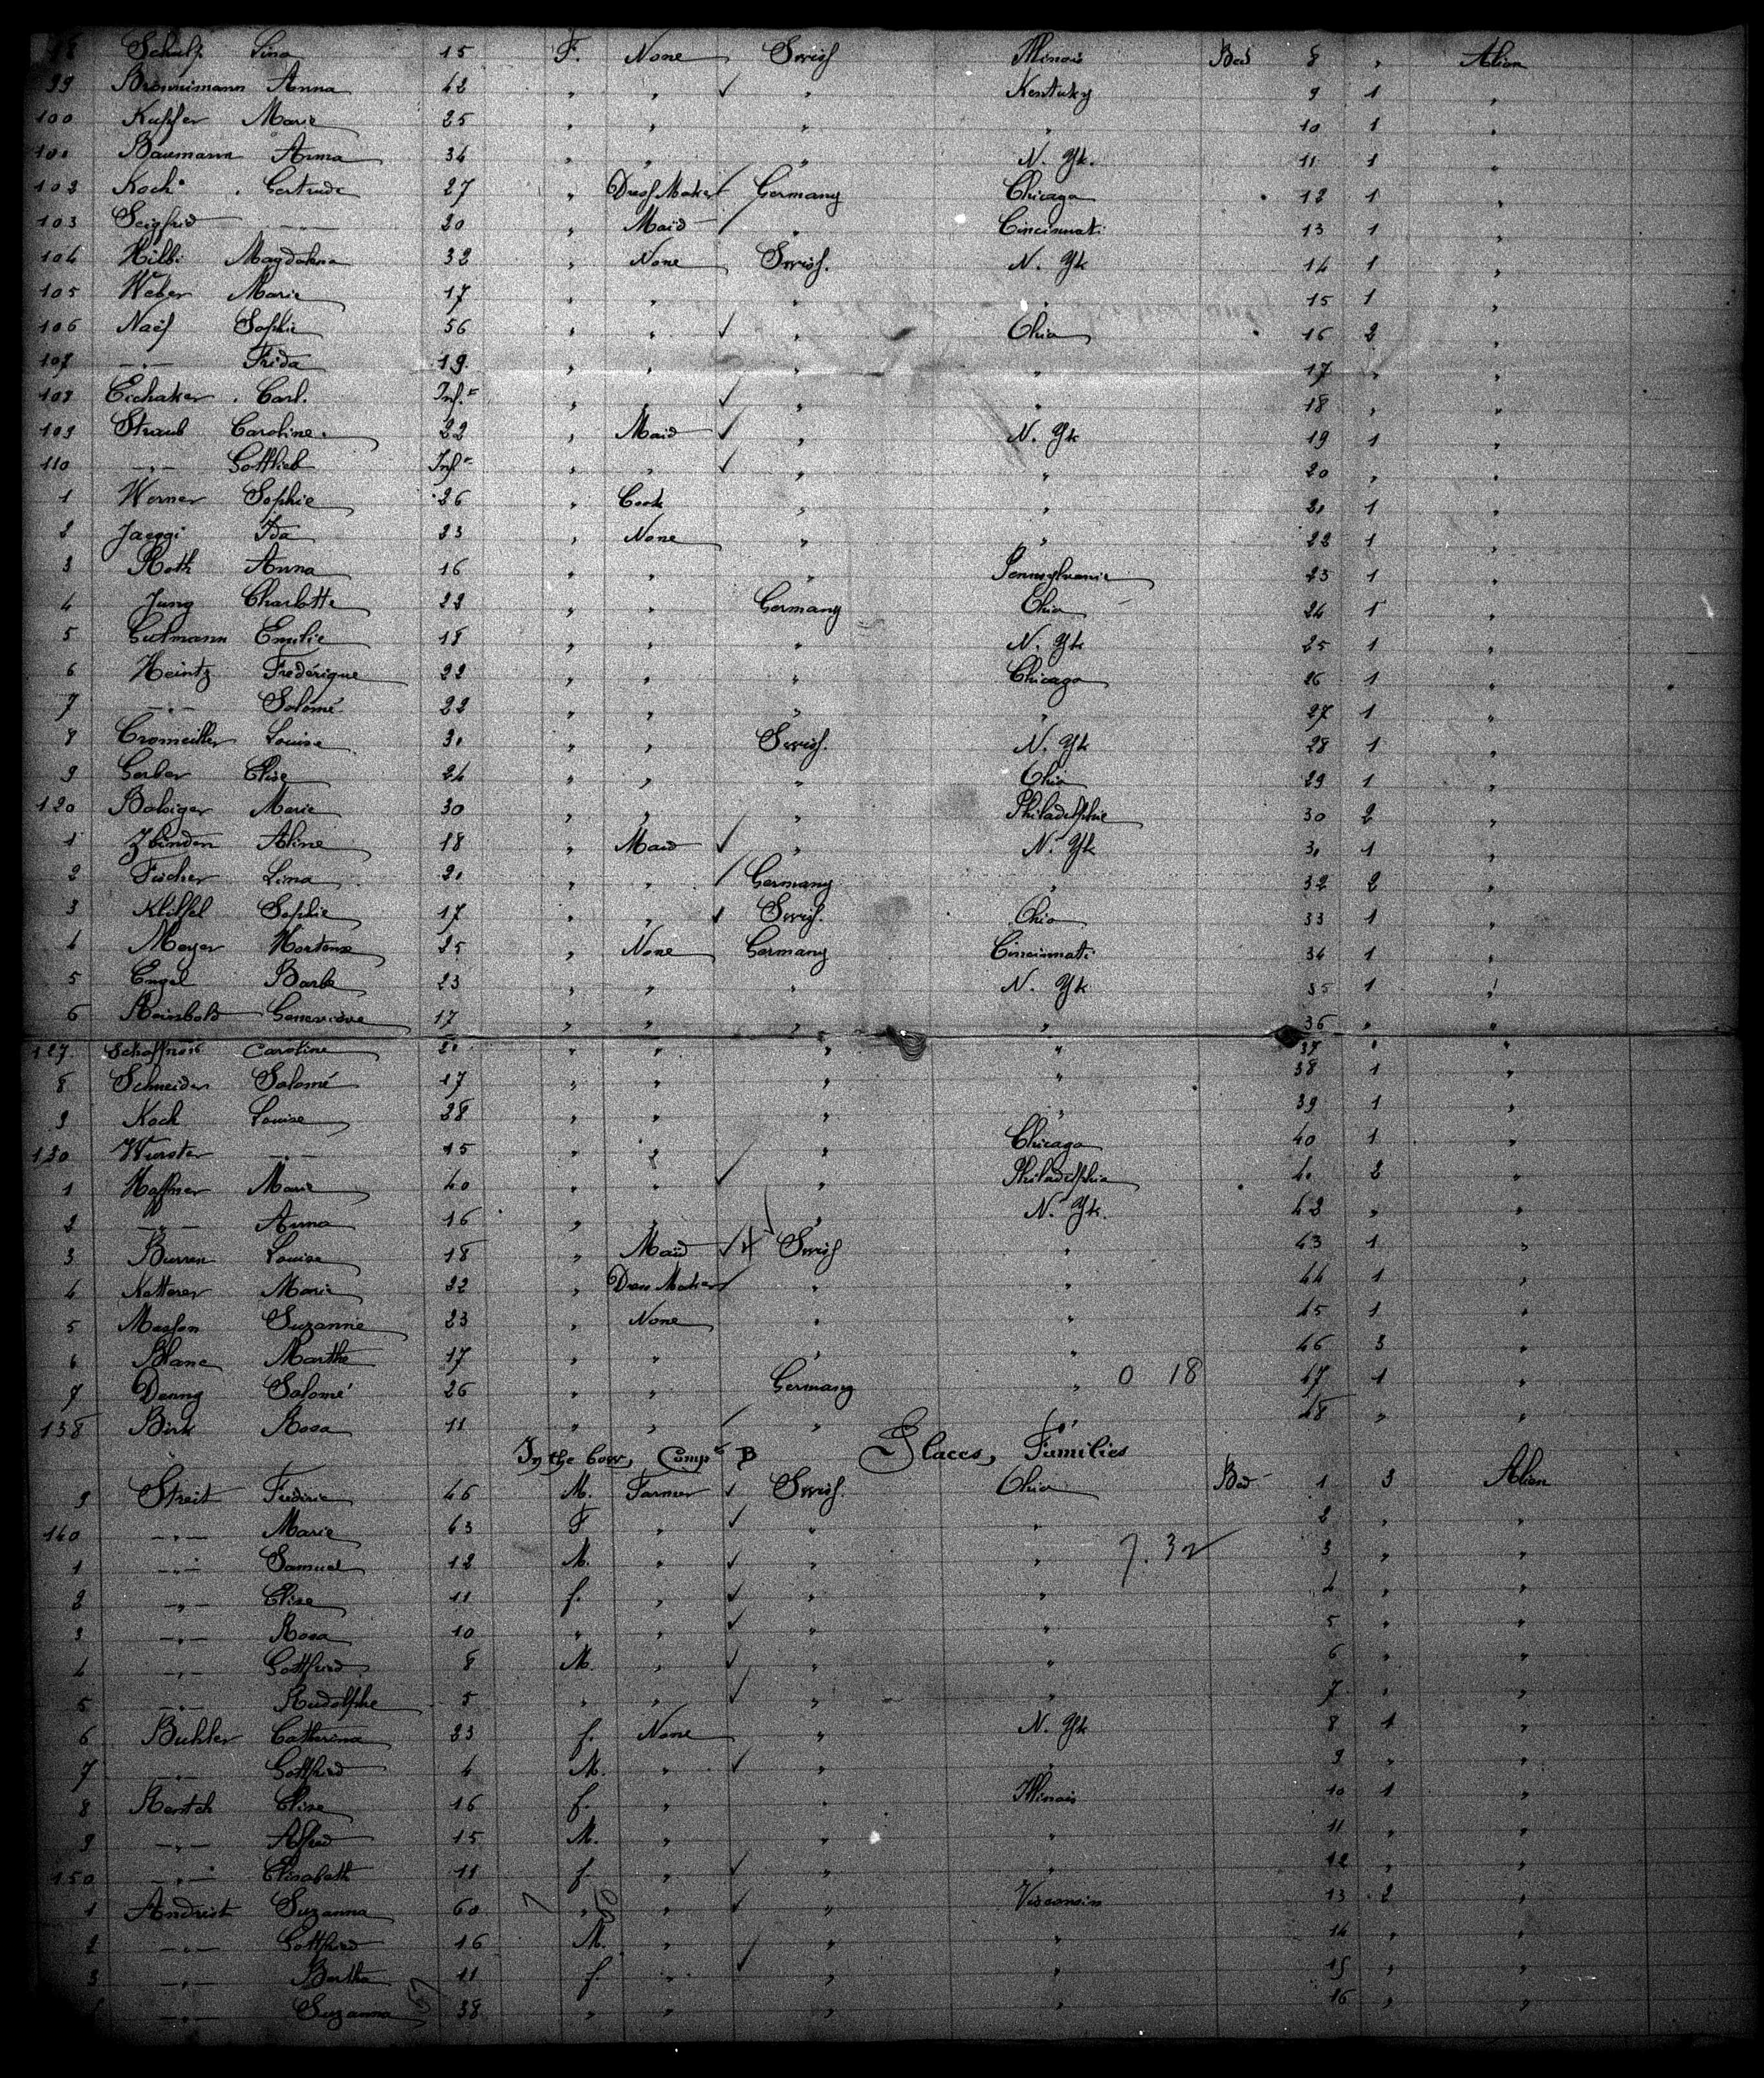 98 Schulz Lina 15 F. None Swiss Illinois Bed 8 " Alien
99 Bronnimann Anna 42 " " ✓ " Kentuky 9 1 "
100 Kupfer Marie 25 " " " " 10 1 "
101 Baumann Anna 34 " " " N. Yk. 11 1 "
102 Koch Gertrude 27 " Dress Maker ✓ Germany Chicago 12 1 "
103 Seigfrid —"— 20 " Maid ✓ " Cincinnati 13 1 "
104 Hilbi Magdalena 32 " None Swiss. N. Yk 14 1 "
105 Weber Marie 17 " " " " 15 1 "
106 Naëf Sophie 56 " " ✓ " Ohio 16 2 "
107 —"— Frida 19 " " " " 17 " "
108 Carl. Inf. " " ✓ " " 18 " "
109 Straub Caroline 22 " Maid ✓ " N. Yk 19 1 "
110 —"— Gottlieb Inf. " " ✓ " " 20 " "
1 Werner Sophie 26 " Cook " " 21 1 "
2 Jaeggi Ida 23 " None " " 22 1 "
3 Roth Anna 16 " " " Pennsylvania 23 1 "
4 Jung Charlotte 22 " " Germany Ohio 24 1 "
5 Gutmann Emilie 18 " " " N. Yk 25 1 "
6 Heintz Frédérique 22 " " " Chicago 26 1 "
7 —"— Salomé 22 " " " " 27 1 "
8 Louise 31 " " Swiss. N. Yk 28 1 "
9 Gerber Elise 24 " " " Ohio 29 1 "
120 Balsiger Marie 30 " " " Philadelphie 30 2 "
1 Zbinden Aline 18 " Maid ✓ " N. Yk 31 1 "
2 Fischer Lina 21 " " ✓ Germany " 32 2 "
3 Sophie 17 " " ✓ Swiss. Ohio 33 1 "
4 Meyer Hortense 25 " None Germany Cincinnati 34 1 "
5 Engel Barbe 23 " " " N. Yk 35 1 "
6 Reinbold Geneviève 17 " " " " 36 " "
127 Caroline 21 " " " " 37 " "
8 Schneider Salomé 17 " " " " 38 1 "
9 Koch Louise 28 " " " " 39 1 "
130 Wurster —"— 15 " " " Chicago 40 1 "
1 Haffner Marie 40 " " ✓ " Philadelphia 41 2 "
2 —"— Anna 16 " " " N. Yk. 42 " "
3 Burren Louise 18 " Maid ✓ Swiss " 43 1 "
4 Marie 22 " Dress Maker ✓ " " 44 1 "
5 Masson Suzanne 23 " None " " 45 1 "
6 Blanc Marthe 17 " " " " 46 3 "
7 Salomé 26 " " Germany " 0 18 47 1 "
138 Birk Rosa 11 " " ✓ " " 48 " "
In the bow, Compt B Places, Families
9 Streit 46 M. Farmer ✓ Swiss. Ohio Bed 1 3 Alien
140 —"— Marie 43 F " ✓ " " 2 " "
1 —"— Samuel 12 M. " ✓ " " 7. 32 3 " "
2 —"— Elise 11 f. " ✓ " " 4 " "
3 —"— Rosa 10 " " ✓ " " 5 " "
4 —"— Gottfried 8 M. " ✓ " " 6 " "
5 —"— Rudolphe 5 " " ✓ " " 7 " "
6 Buhler Catherina 23 f. None " N. Yk 8 1 "
7 —"— Gottfried 4 M. " ✓ " " 9 " "
8 Elise 16 f. " " Illinois 10 1 "
9 —"— Alfred 15 M. " " " 11 " "
150 —"— Elisabeth 11 f. " ✓ " " 12 " "
1 Andrist Suzanna 60 " " ✓ " Visconsin 13 2 "
2 —"— Gottfried 16 M. " " " 14 " "
3 —"— Bertha 11 f " ✓ " " 15 " "
—"— Suzanna 38 " " " " 16 " "